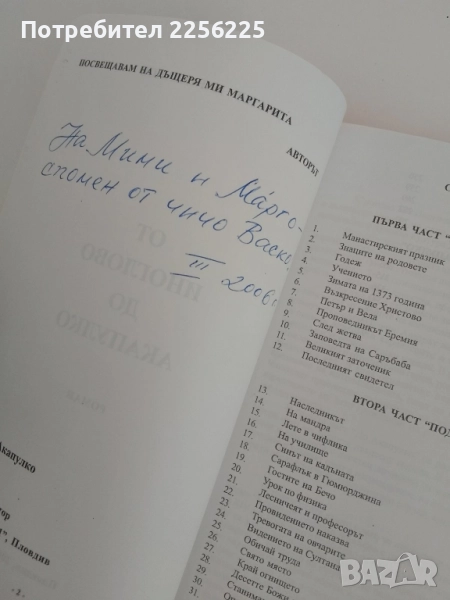 Потребител 2256225
ПОСВЕЩАВАМ НА ДЪЩЕРЯ МИ МАРГАРИТА
АВТОРЪТ
На Мими и Марго-
спомен от чичо Васко
III 2006
ОТ
ИНОГЛОВО
ДО
АКАПУЛКО
роман
Акапулко
", Пловдив
- 2 -
ПЪРВА ЧАСТ "
1. Манастирският празник
2. Знаците на родовете
3. Годеж
4. Учението
5. Зимата на 1373 година
6. Възкресение Христово
7. Петър и Вела
8. Проповедникът Еремия
9. След жетва
10. Заповедта на Саръбаба
11. Великият заточеник
12. Последният свидетел
ВТОРА ЧАСТ "ПОД
13. Наследникът
14. На мандра
15. Лете в чифлика
16. На училище
17. Синът на кадъната
18. Сарафлък в Гюмюрджина
19. Гостите на Бечо
20. Урок по физика
21. Лесничеят и професорът
22. Провидението наказва
23. Тревогата на овчарите
24. Видението на Султана
25. Обичай труда
26. Свято място
27. Край огнището
28. Десетте Божи
29. Станимака
30.
31.
BAZAR.bg